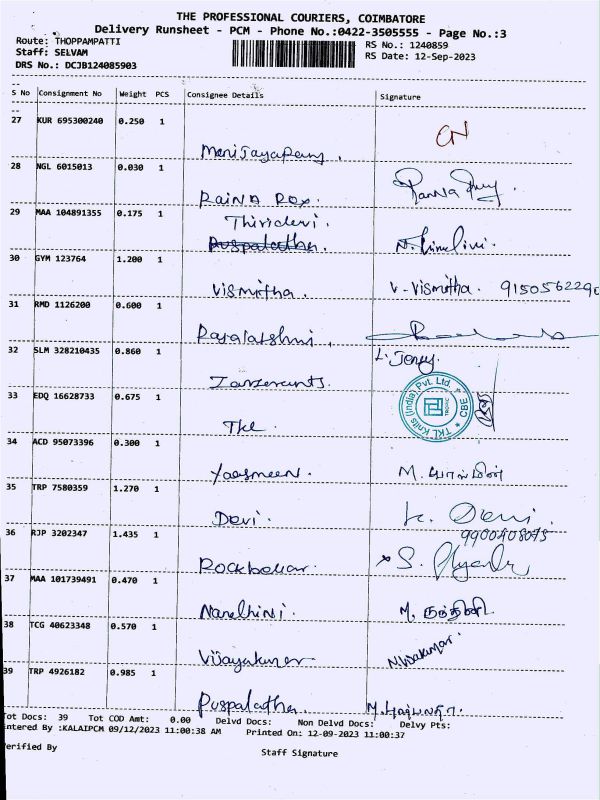 THE PROFESSIONAL COURIERS, COIMBATORE
Delivery Runsheet - PCM - Phone No.:0422-3505555 - Page No.:3
Route: THOPPAMPATTI
RS No.: 1240859
Staff: SELVAM
RS Date: 12-Sep-2023
DRS No.: DCJB124085903
S No Consignment No Weight PCS Consignee Details Signature
27 KUR 695300240 0.250 1
28 NGL 6015013 0.030 1
RAINA Rex.
29 MAA 104891355 0.175 1
Thiridevi.
Puspalatha.
30 GYM 123764 1.200 1
Vismitha. V. Vismitha. 9150562290
31 RMD 1126200 0.600 1
Rajalakshmi.
32 SLM 328210435 0.860 1
33 EDQ 16628733 0.675 1
TKL KNITS (India) Pvt. Ltd. CBE
Tkl
34 ACD 95073396 0.300 1
Yaasmeen. M. யாஸ்மின்
35 TRP 7580359 1.270 1
Devi. K. Devi.
36 RJP 3202347 1.435 1
37 MAA 101739491 0.470 1
Nandhini. M. நந்தினி
38 TCG 40623348 0.570 1
Vijayakumar N.Vijakumar.
39 TRP 4926182 0.985 1
Puspalatha. M. புஷ்பலதா.
Tot Docs: 39 Tot COD Amt: 0.00 Delvd Docs: Non Delvd Docs: Delvy Pts:
ntered By :KALAIPCM 09/12/2023 11:00:38 AM Printed On: 12-09-2023 11:00:37
erified By Staff Signature